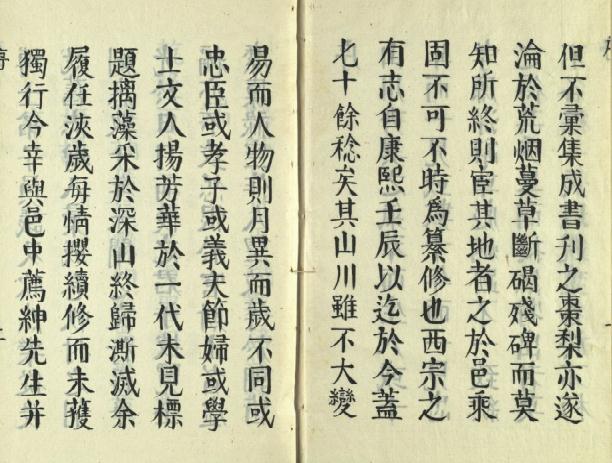 但不彙集成書刋之棗梨亦遂
淪於荒烟蔓草斷碣殘碑而莫
知所終則宦其地者之於邑乘
固不可不時爲纂修也西宗之
有志自康熙壬辰以迄於今蓋
七十餘稔矣其山川雖不大變
易而人物則月異而歲不同或
忠臣或孝子或義夫節婦或學
士文人揚芳華於一代未見標
題摛藻采於深山終歸澌滅余
履任浹歲每情攖續修而未獲
獨行今幸與邑中薦紳先生并